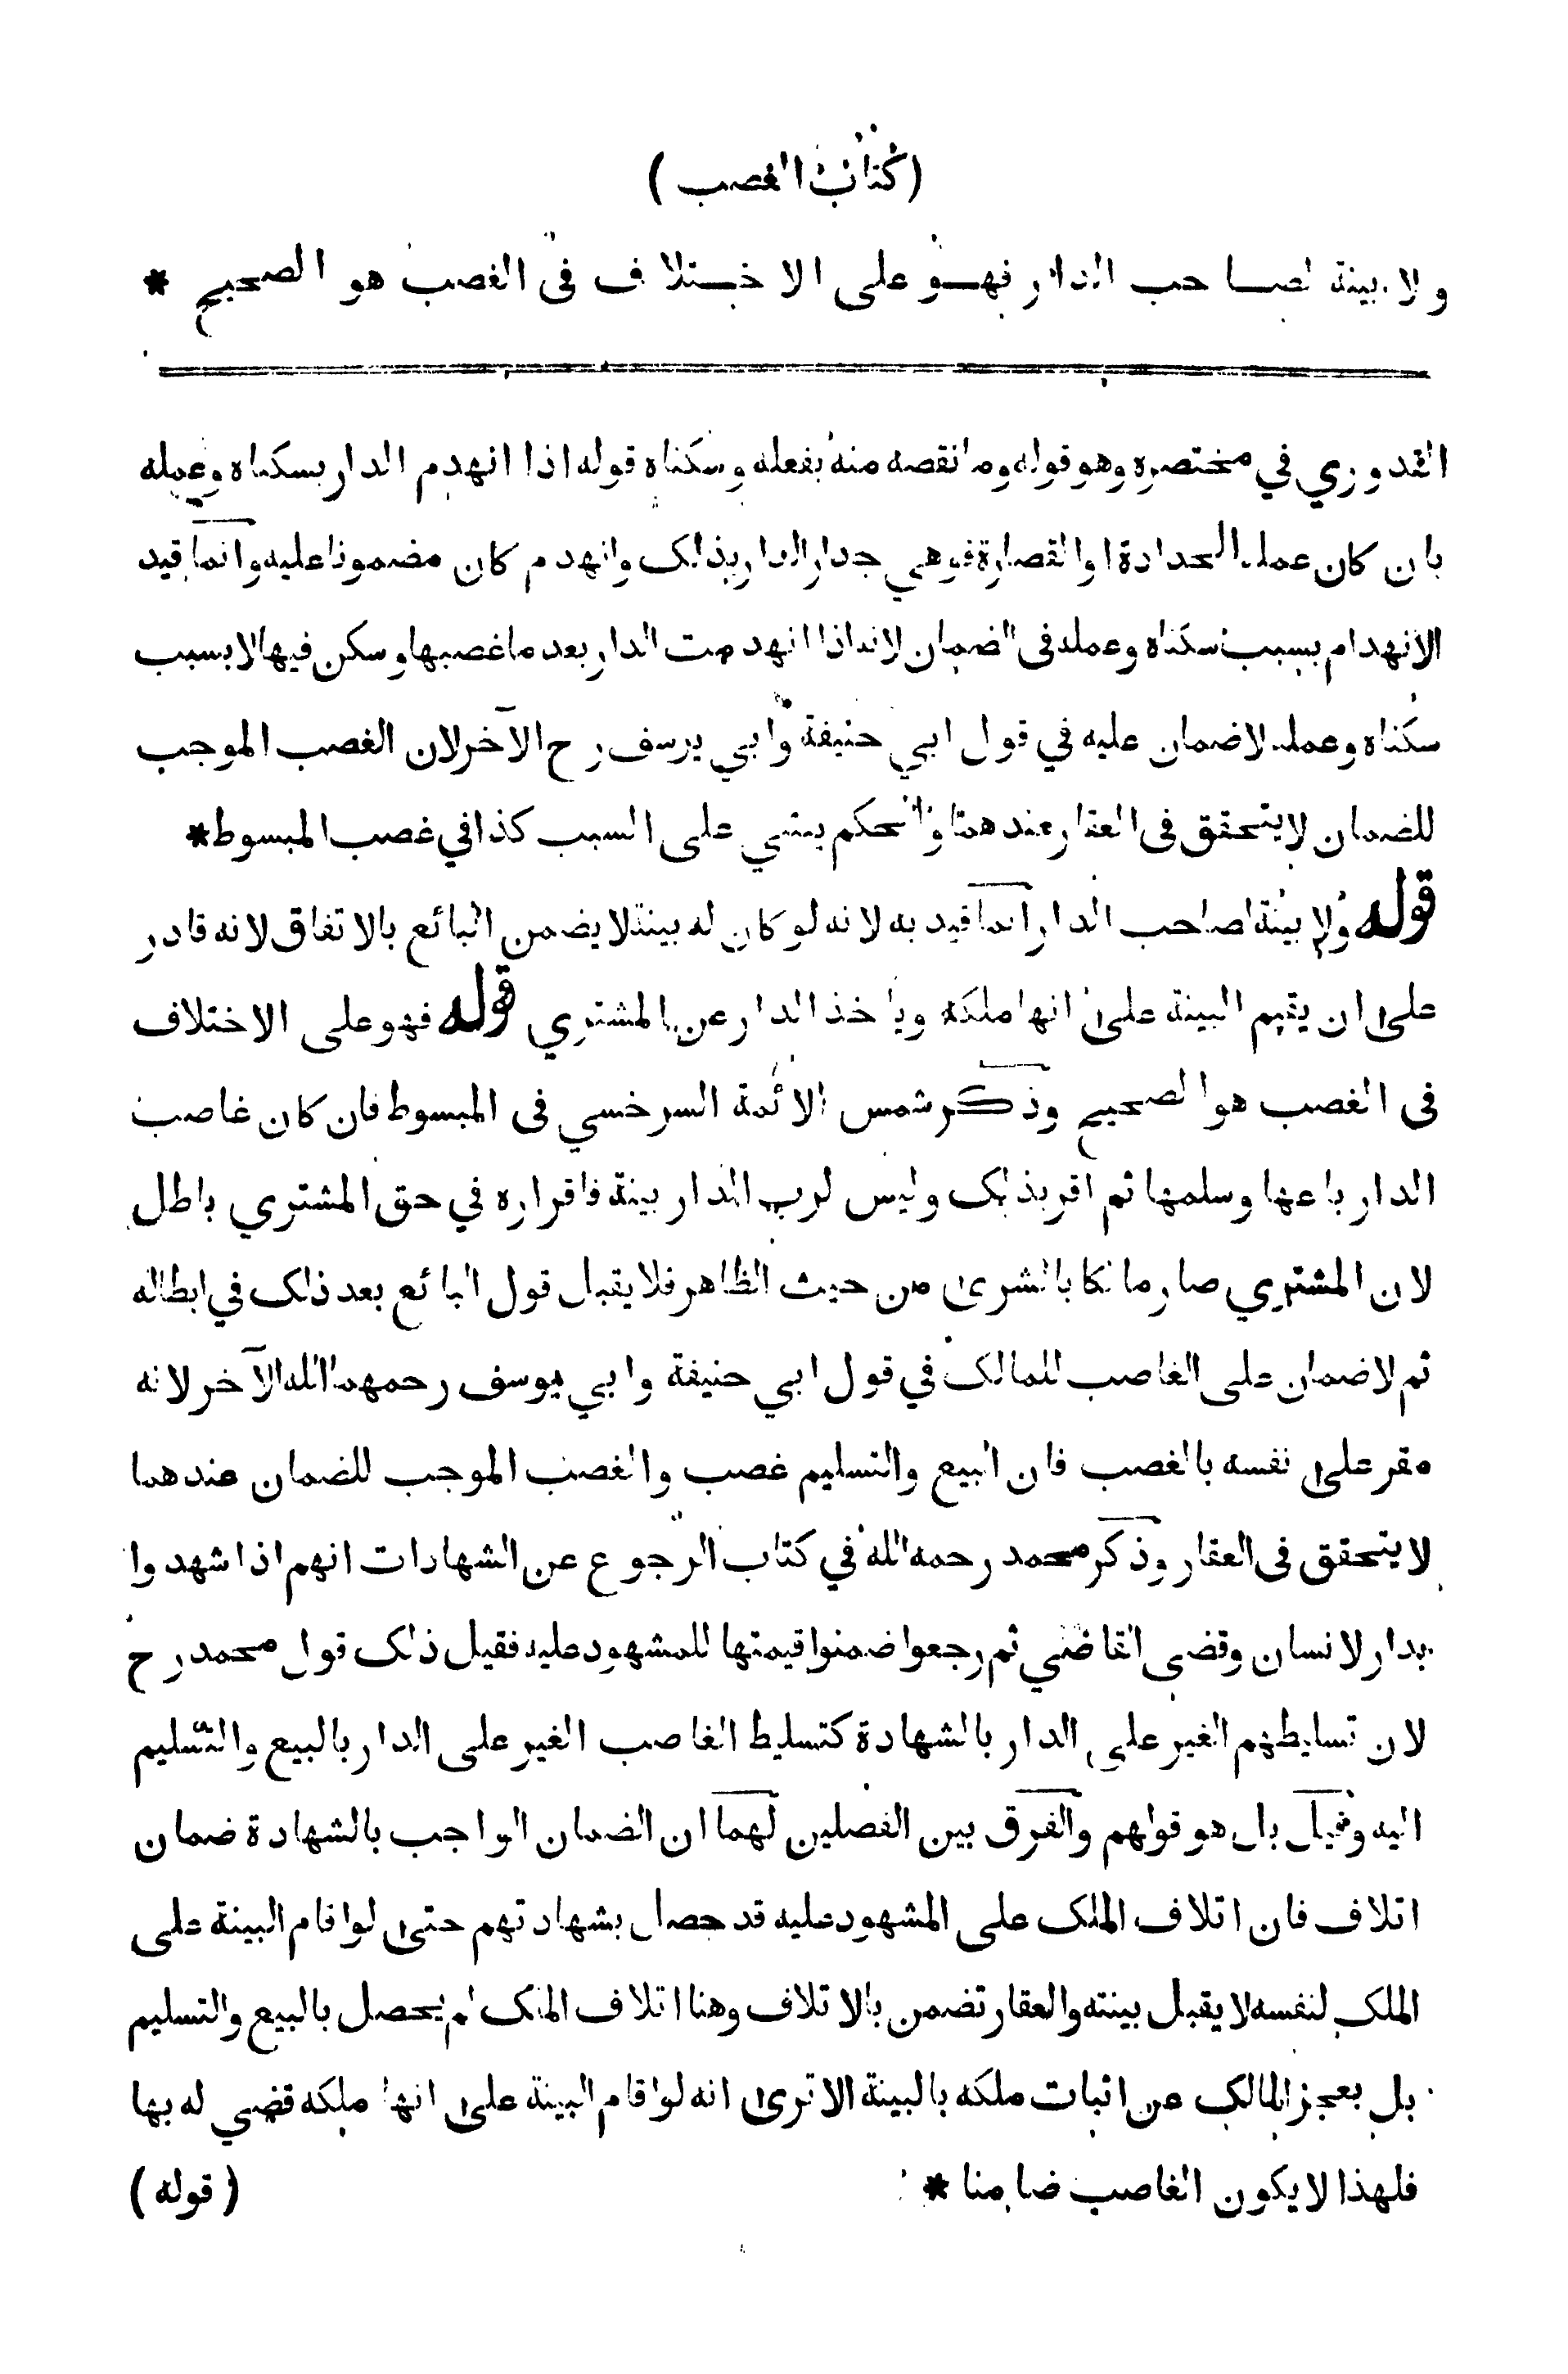 (كتاب الغصب)
ولا بينة لصاحب الدار فهو على الاختلاف فى الغصب هو الصحيح *
القدوري في مختصره وهو قوله وما نقصه منه بفعله وسكناه قوله اذا انهدم الدار بسكناه وعمله
بان كان عمله الحدادة او القصارة فوهى جدار الدار بذلك وانهدم كان مضمونا عليه وانما قيد
الانهدام بسبب سكناه وعمله فى الضمان لانه اذا انهدمت الدار بعد ما غصبها وسكن فيها لا بسبب
سكناه وعمله لا ضمان عليه في قول ابي حنيفة وابي يوسف رح الآخر لان الغصب الموجب
للضمان لا يتحقق فى العقار عندهما والحكم يبتني على السبب كذا في غصب المبسوط*
قوله ولا بينة لصاحب الدار انما قيد به لانه لو كان له بينة لا يضمن البائع بالاتفاق لانه قادر
على ان يقيم البينة على انها ملكه ويأخذ الدار عن المشتري قوله فهو على الاختلاف
فى الغصب هو الصحيح وذكر شمس الائمة السرخسي فى المبسوط فان كان غاصب
الدار باعها وسلمها ثم اقر بذلك وليس لرب الدار بينة فاقراره في حق المشتري باطل
لان المشتري صار مالكا بالشرى من حيث الظاهر فلا يقبل قول البائع بعد ذلك في ابطاله
ثم لا ضمان على الغاصب للمالك في قول ابي حنيفة وابي يوسف رحمهما الله الآخر لانه
مقر على نفسه بالغصب فان البيع والتسليم غصب والغصب الموجب للضمان عندهما
لا يتحقق فى العقار وذكر محمد رحمه الله في كتاب الرجوع عن الشهادات انهم اذا شهدوا
بدار لانسان وقضى القاضي ثم رجعوا ضمنوا قيمتها للمشهود عليه فقيل ذلك قول محمد رح
لان تسليطهم الغير على الدار بالشهادة كتسليط الغاصب الغير على الدار بالبيع والتسليم
اليه وقيل بل هو قولهم والفرق بين الفصلين لهما ان الضمان الواجب بالشهادة ضمان
اتلاف فان اتلاف الملك على المشهود عليه قد حصل بشهادتهم حتى لو اقام البينة على
الملك لنفسه لا يقبل بينته والعقار تضمن بالاتلاف وهنا اتلاف الملك لم يحصل بالبيع والتسليم
بل بعجز المالك عن اثبات ملكه بالبينة الا ترى انه لو اقام البينة على انها ملكه قضي له بها
فلهذا لا يكون الغاصب ضامنا *
(قوله)